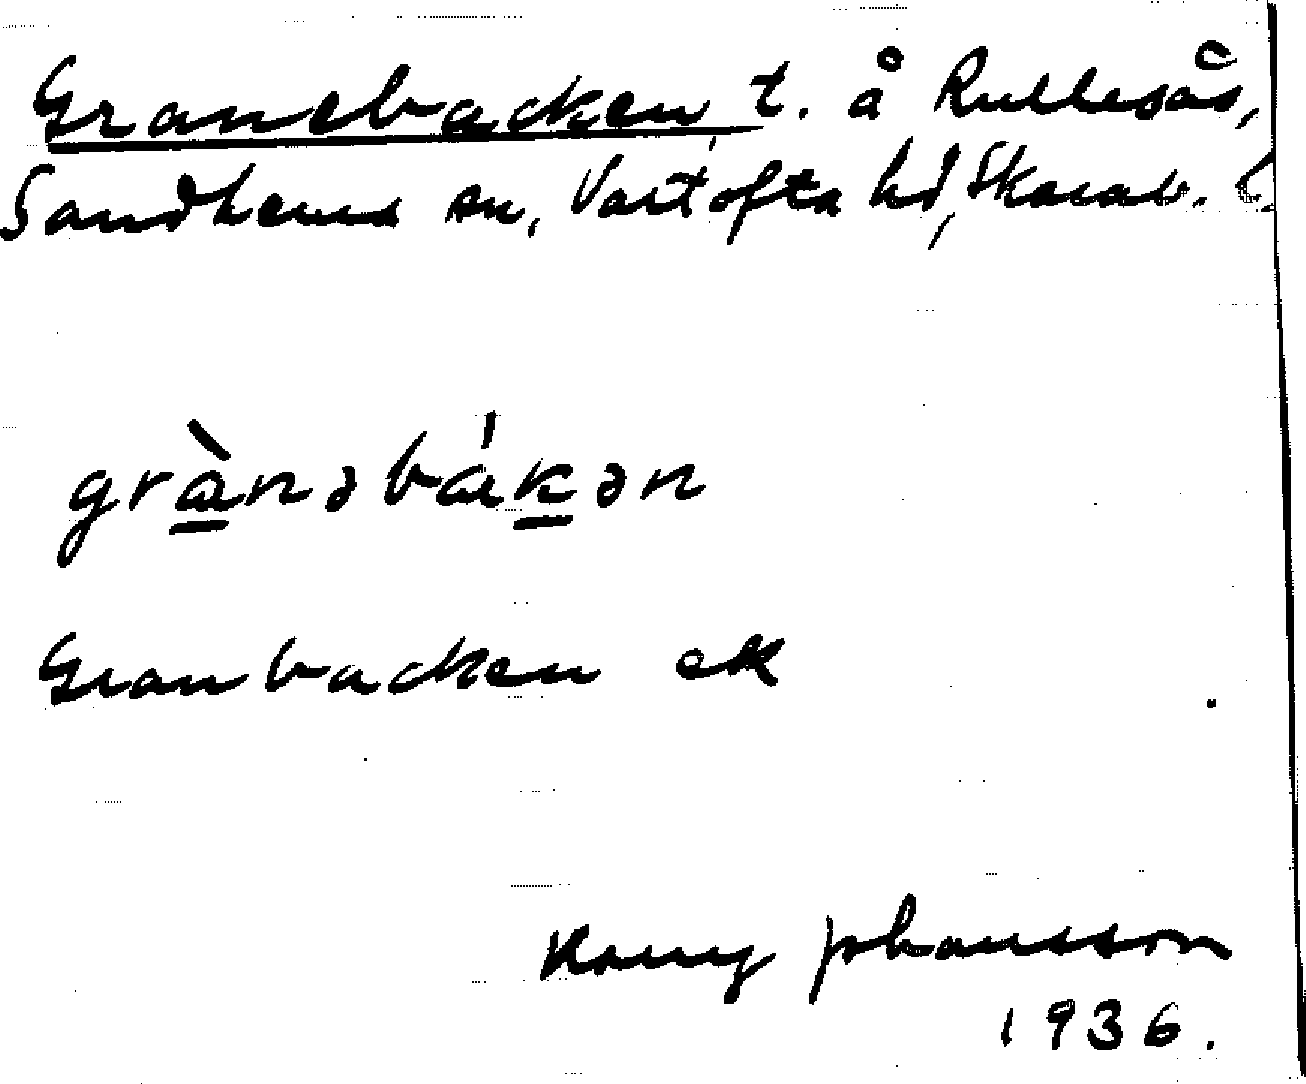 Granebacken t. å Rullesås,
Sandhems sn, Vartofta hd, Skarab. l
grànəbákən
Granbacken ek
Johansson
1936.